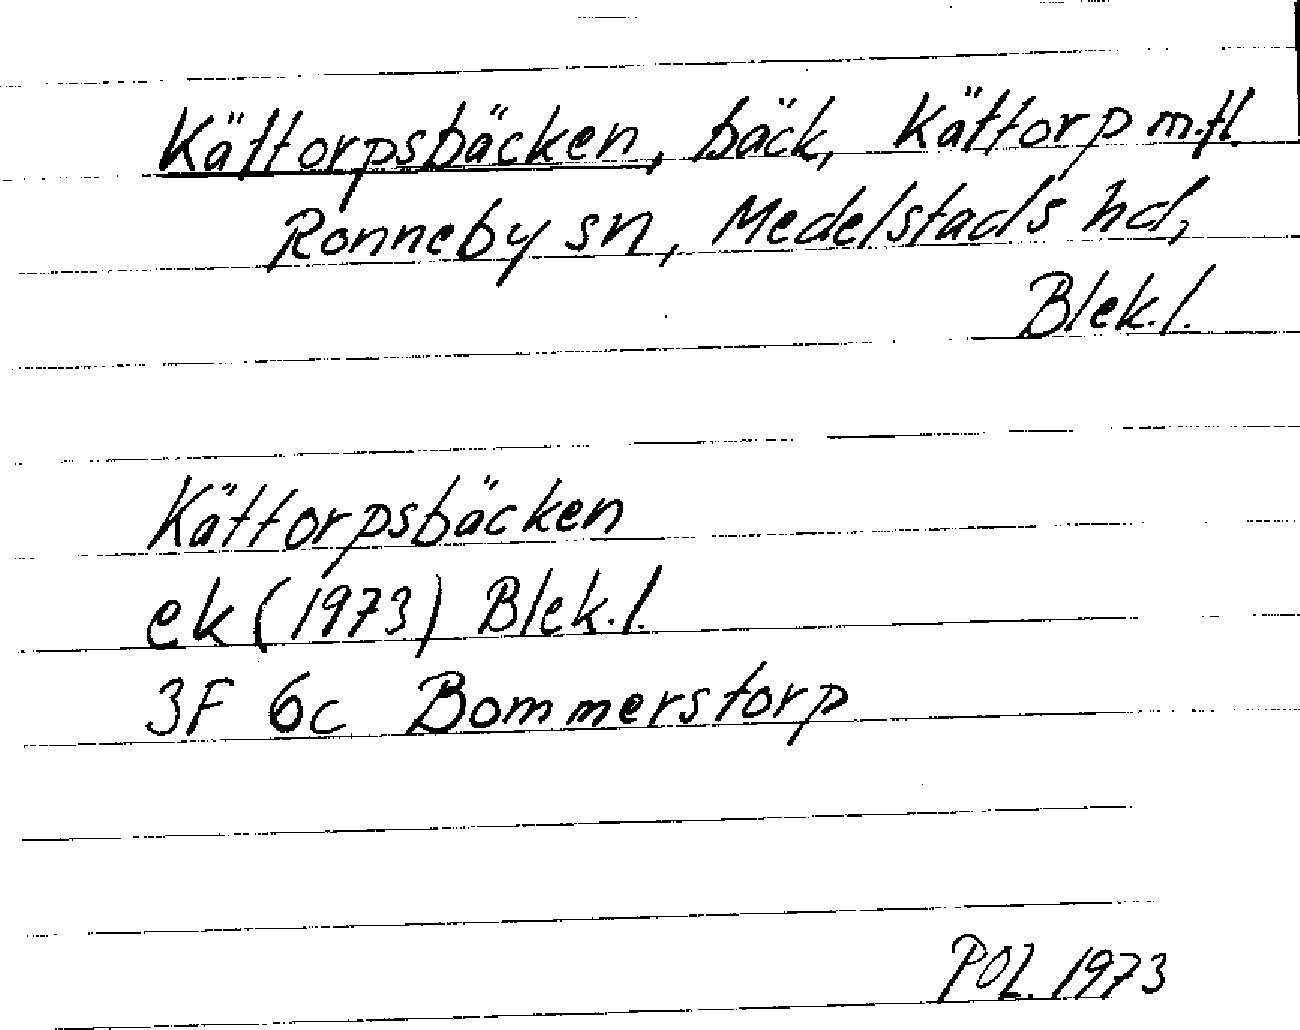 Kättorpsbäcken, bäck, Kättorp m.fl.
Ronneby sn, Medelstads hd,
Blek.l.
Kättorpsbäcken
ek (1973) Blek.l.
3F 6c Bommerstorp
POL 1973